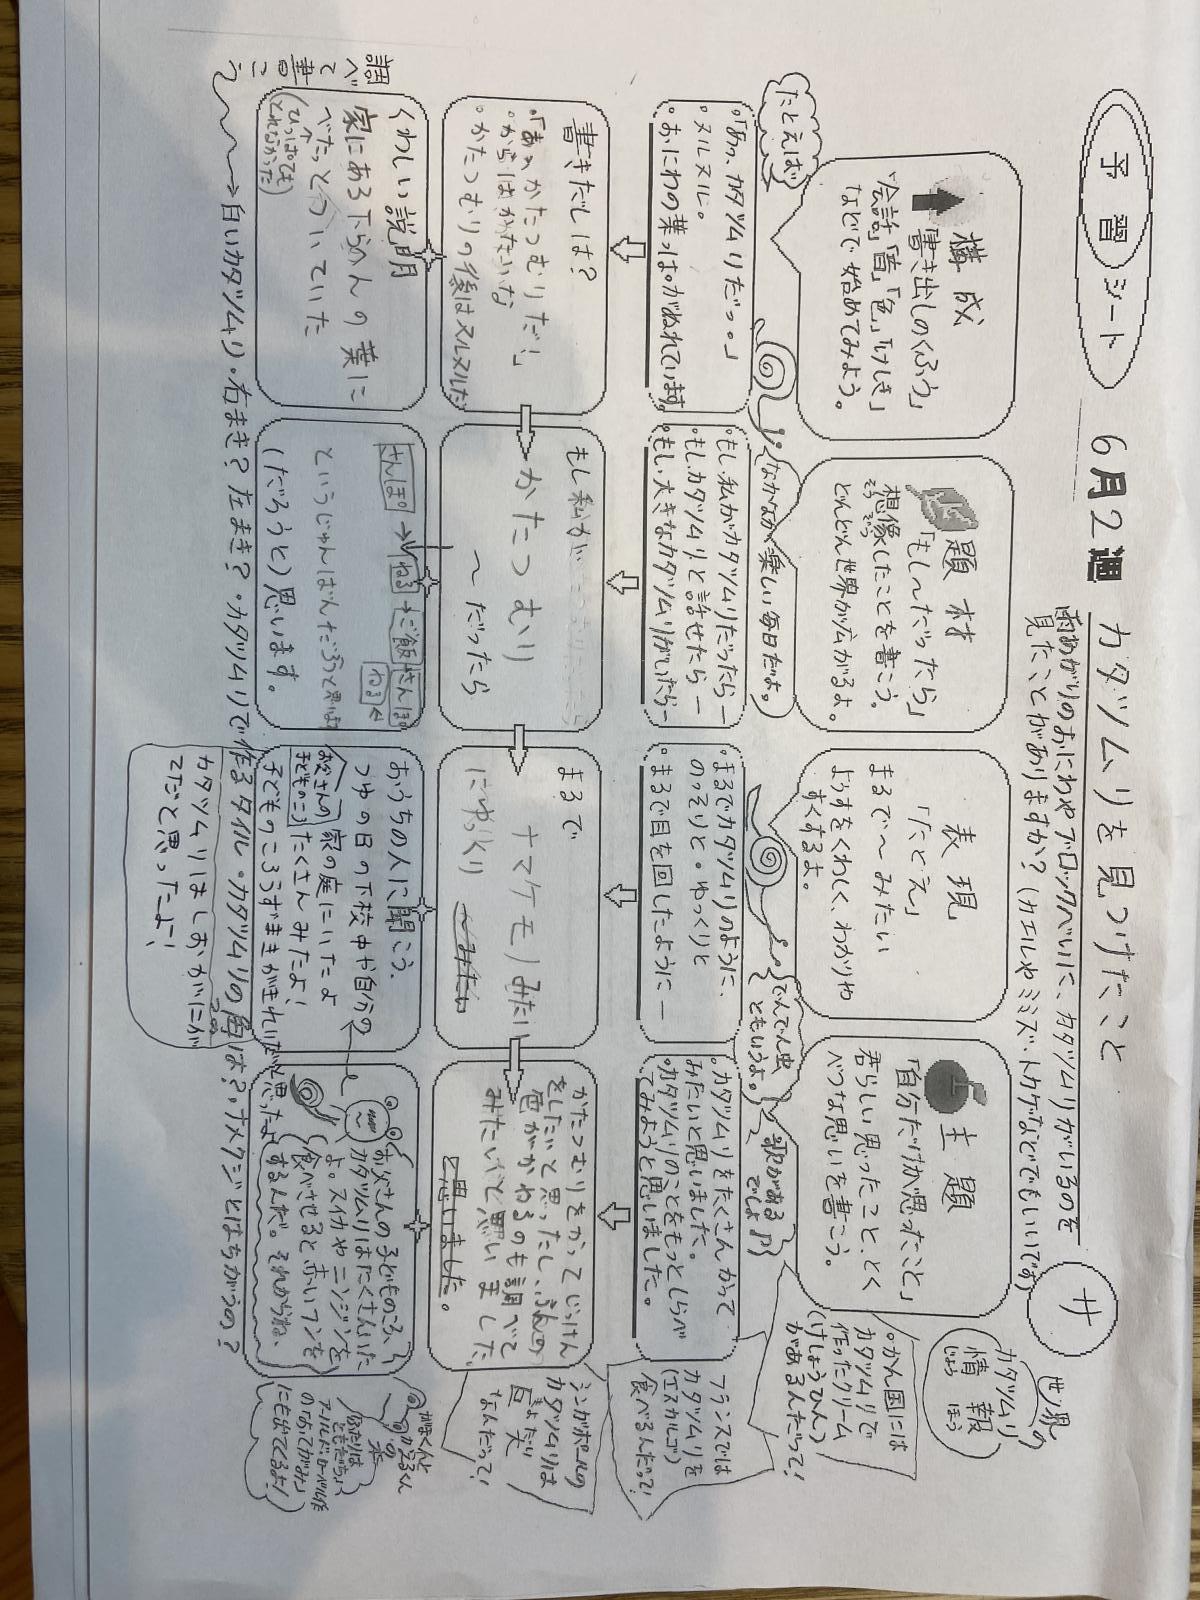 予習シート
6月2週
カタツムリを見つけたこと
雨あがりのおにわやブロックべいに、カタツムリがいるのを
見たことがありますか？（カエルやミミズ・トカゲなどでもいいです）
サ
構成
「書き出しのくふう」
「会話」「音」「色」「けしき」
などで始めてみよう。
たとえば
題材
「もし〜だったら」
想像したことを書こう。
そうぞう
どんどん世界が広がるよ。
なかなか楽しい毎日だよ。
表現
「たとえ」
まるで〜みたい
ようすをくわしく、わかりや
すくするよ。
でんでん虫
ともいうよ。
主題
「自分だけが思ったこと」
君らしい思ったこと、とく
べつな思いを書こう。
歌がある
でしょ
世界の
カタツムリ
情報
じょう
ほう
・かん国には
カタツムリで
作ったクリーム
（けしょうひん）
があるんだって！
・「あっ、カタツムリだっ。」
・ヌルヌル。
・おにわの葉っぱがぬれています。
・もし、私がカタツムリだったら―
・もし、カタツムリと話せたら―
・もし、大きなカタツムリがいたら―
・まるでカタツムリのように、
のっそりと・ゆっくりと
・まるで目を回したように―
・カタツムリをたくさんかって
みたいと思いました。
・カタツムリのことをもっとしらべ
てみようと思いました。
フランスでは
カタツムリを
（エスカルゴ）
食べるんだって！
書きだしは？
・「あっかたつむりだ！」
・からはかたいな
・かたつむりの後はヌルヌルだ
もし私が
かたつむり
〜だったら
まるで
ナマケモノみたい
にゆっくり
かたつむりをかってじっけん
をしたいと思ったし、ふんの
色がかわるのも調べて
みたいなと思いました
と思いました。
シンガポールの
カタツムリは
巨大
きょだい
なんだって！
くわしい説明
家にあるドラヘんの葉に
べたっとついていた
（ひっぱっても
とれなかった）
さんぽ
→
ねる
→
ご飯
さんぽ
ねる
というじゅんばんだろうと思います
（だろうと）思います。
おうちの人に聞こう。
つゆの日の下校中や自分の
家の庭にいたよ
お父さんの
子どものころ
たくさんみたよ！
子どものころうずまきがきれいだと思ったよ
お父さんの子どものころ、
カタツムリはたくさんいた
よ。スイカやニンジンを
食べさせると、赤いフンを
するんだ。それからね、
がまくんと
かえるくん
の本
ふたりは
ともだち
アーノルド・ローベル作
の「おてがみ」
にも出てくるよ！
調べて書こう
〜→白いカタツムリ・右まき？左まき？・カタツムリで作るタイル・カタツムリの角は？・ナメクジとはちがうの？
つの
カタツムリはしおがにが
てだと思ったよ！